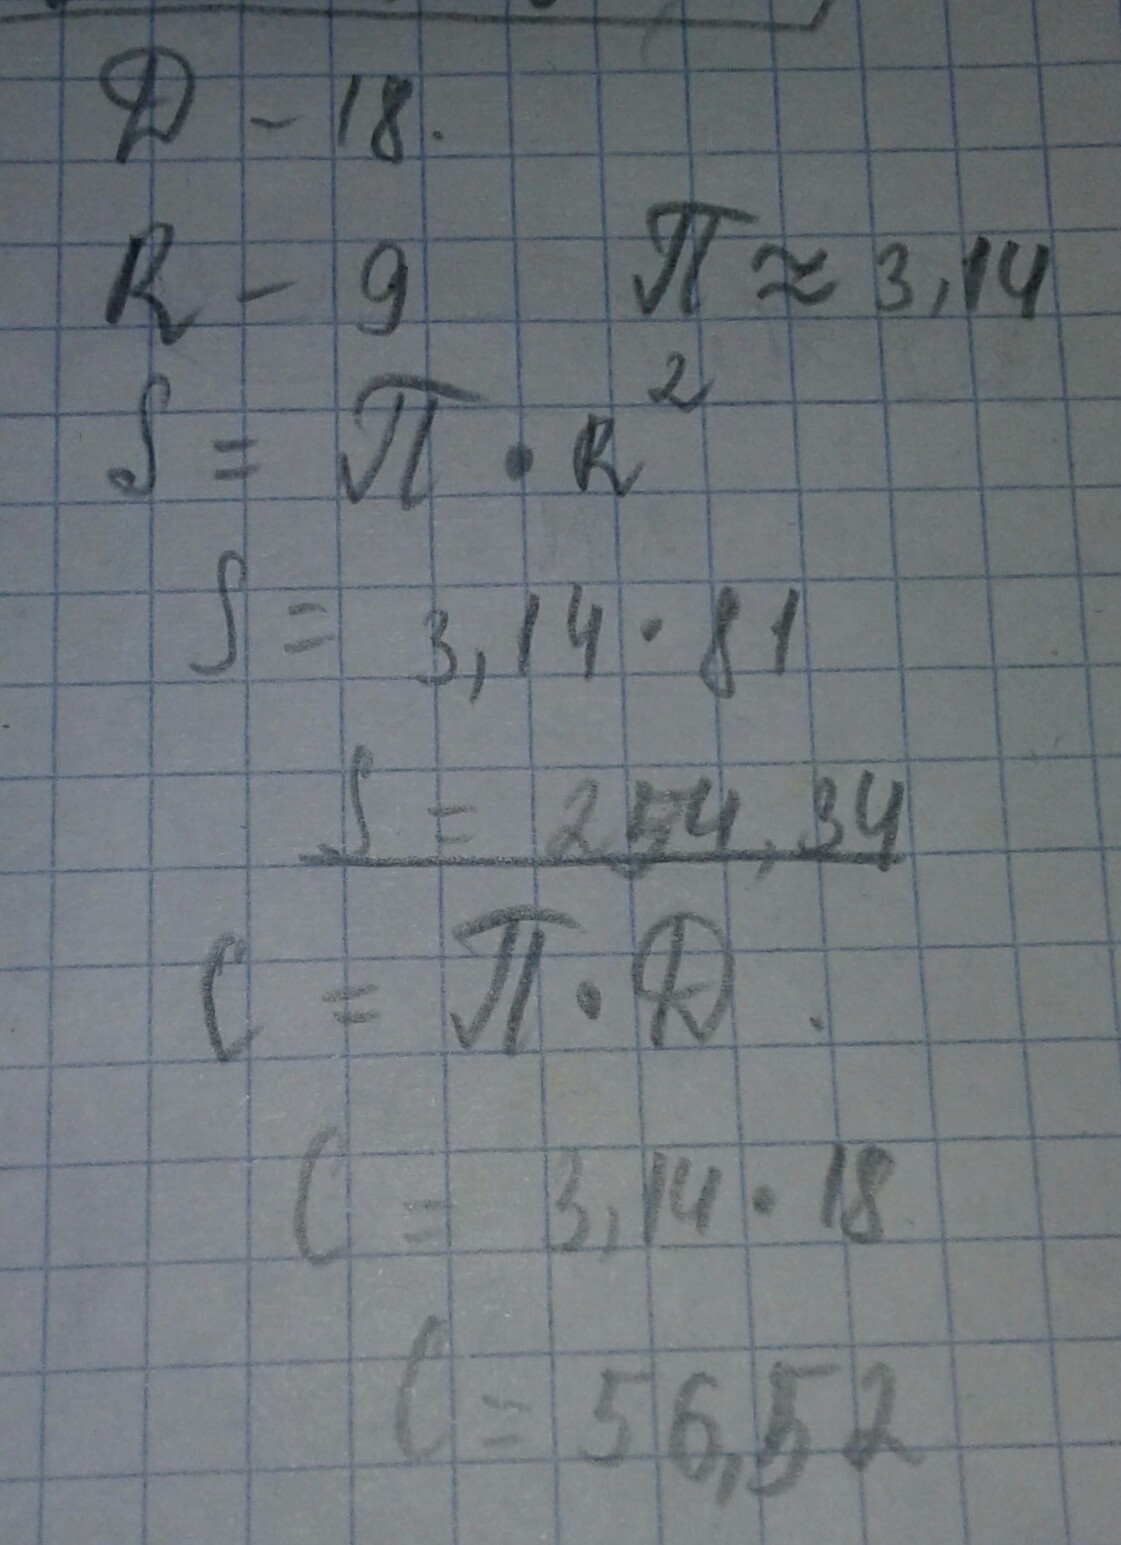 D - 18.
R - 9 π ≈ 3,14
S = π · R²
S = 3,14 · 81
S = 254,34
C = π · D .
C = 3,14 · 18
C = 56,52